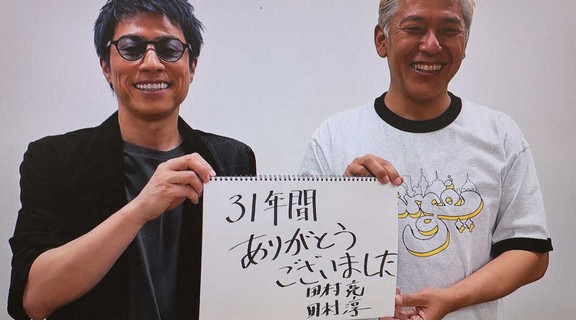 31年間
ありがとう
ございました
田村 亮
田村 淳